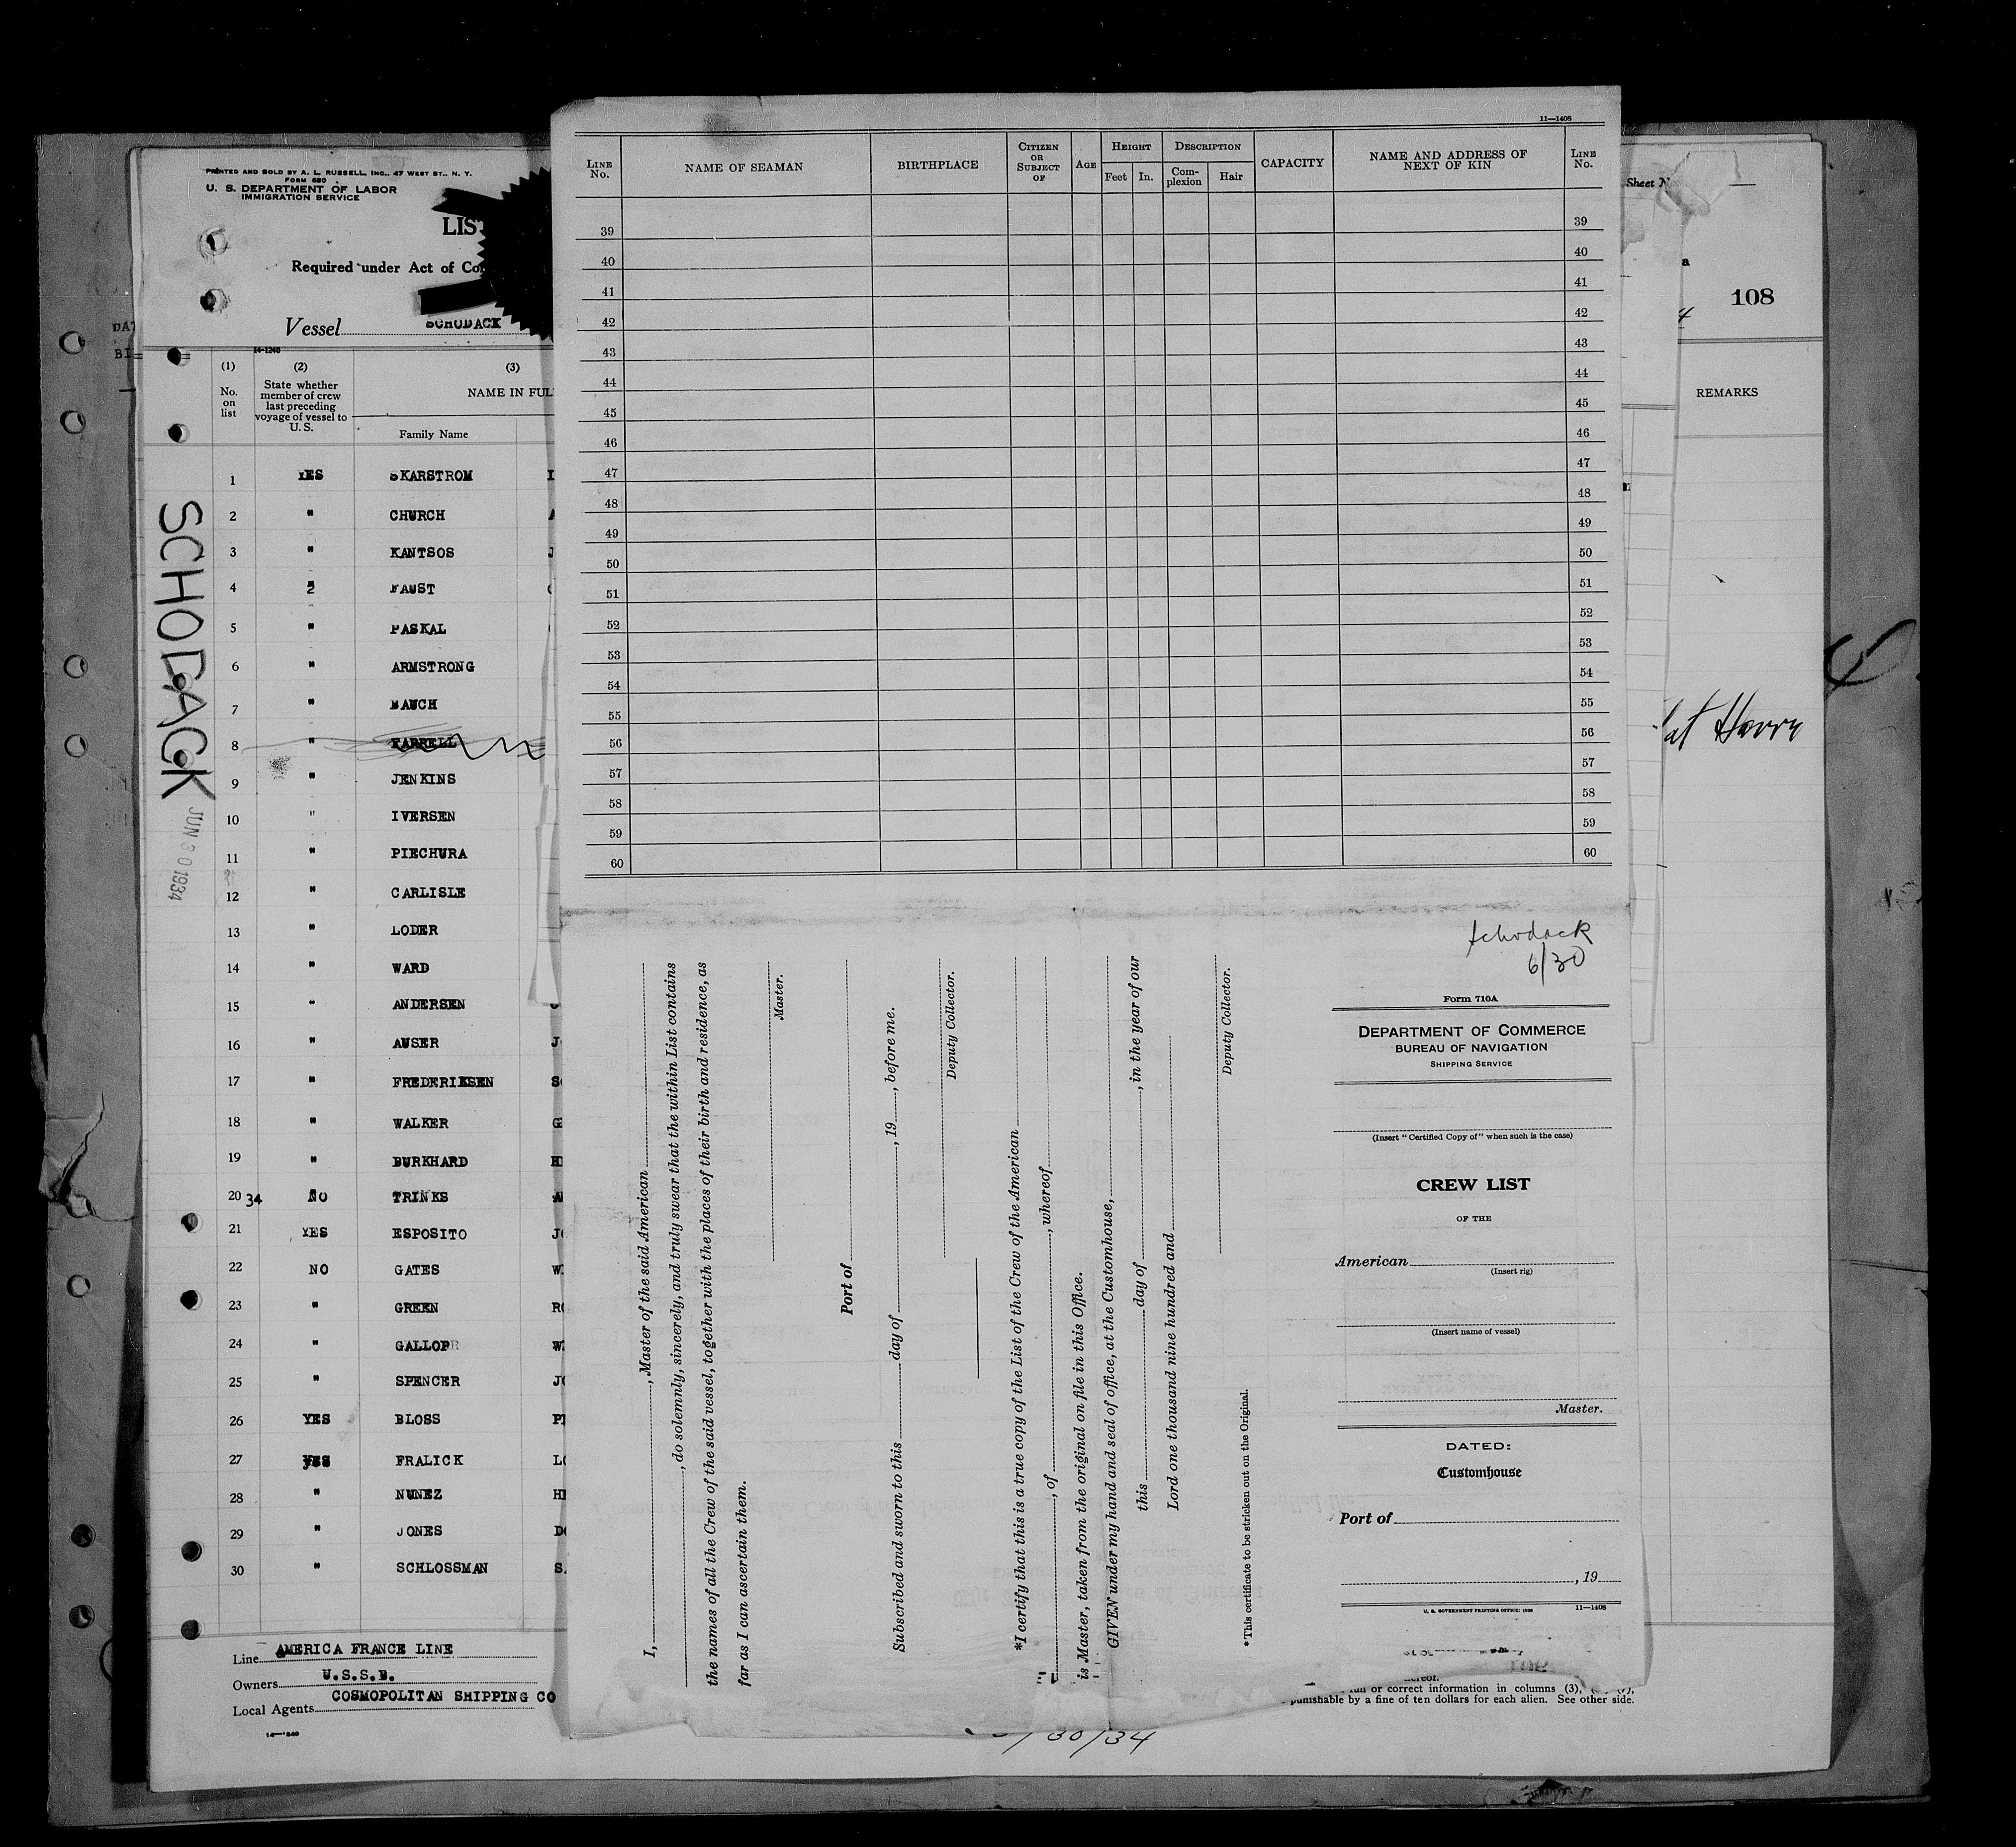 PRINTED AND SOLD BY A. L. RUSSELL, INC., 47 WEST ST., N. Y.
FORM 680
U. S. DEPARTMENT OF LABOR
IMMIGRATION SERVICE
Required under Act of
Vessel SCHODACK
14-1240
(1) (2) (3)
No. on list
State whether member of crew last preceding voyage of vessel to U. S.
NAME IN FUL
Family Name
1 YES SKARSTROM
2 " CHURCH
3 " KANTSOS
4 2 FAUST
5 " PASKAL
6 " ARMSTRONG
7 " BAUCH
8 " FARRELL
9 " JENKINS
10 " IVERSEN
11 " PIECHURA
12 " CARLISLE
13 " LODER
14 " WARD
15 " ANDERSEN
16 " AUSER J
17 " FREDERIKSEN S
18 " WALKER G
19 " BURKHARD H
20 34 NO TRINKS A
21 YES ESPOSITO JO
22 NO GATES W
23 " GREEN RO
24 " GALLOP W
25 " SPENCER JO
26 YES BLOSS P
27 YES FRALICK LO
28 " NUNEZ H
29 " JONES DO
30 " SCHLOSSMAN S
SCHODACK
JUN 30 1934
Line AMERICA FRANCE LINE
Owners U.S.S.B.
Local Agents COSMOPOLITAN SHIPPING CO
14—1240
11—1408
LINE No.
NAME OF SEAMAN
BIRTHPLACE
CITIZEN OR SUBJECT OF
AGE
HEIGHT
Feet In.
DESCRIPTION
Com-plexion Hair
CAPACITY
NAME AND ADDRESS OF NEXT OF KIN
LINE No.
39 39
40 40
41 41
42 42
43 43
44 44
45 45
46 46
47 47
48 48
49 49
50 50
51 51
52 52
53 53
54 54
55 55
56 56
57 57
58 58
59 59
60 60
I, , Master of the said American
, do solemnly, sincerely, and truly swear that the within List contains
the names of all the Crew of the said vessel, together with the places of their birth and residence, as
far as I can ascertain them.
Master.
Port of
Subscribed and sworn to this day of , 19 , before me.
Deputy Collector.
*I certify that this is a true copy of the List of the Crew of the American
, of , whereof
is Master, taken from the original on file in this Office.
GIVEN under my hand and seal of office, at the Customhouse,
this day of , in the year of our
Lord one thousand nine hundred and
Deputy Collector.
*This certificate to be stricken out on the Original.
Schodack
6/30
Form 710A
DEPARTMENT OF COMMERCE
BUREAU OF NAVIGATION
SHIPPING SERVICE
(Insert "Certified Copy of" when such is the case)
CREW LIST
OF THE
American
(Insert rig)
(Insert name of vessel)
Master.
DATED:
Customhouse
Port of
, 19
U. S. GOVERNMENT PRINTING OFFICE: 1930 11—1408
or correct information in columns (3),
punishable by a fine of ten dollars for each alien. See other side.
/30/34
Sheet No.
108
REMARKS
at Havre